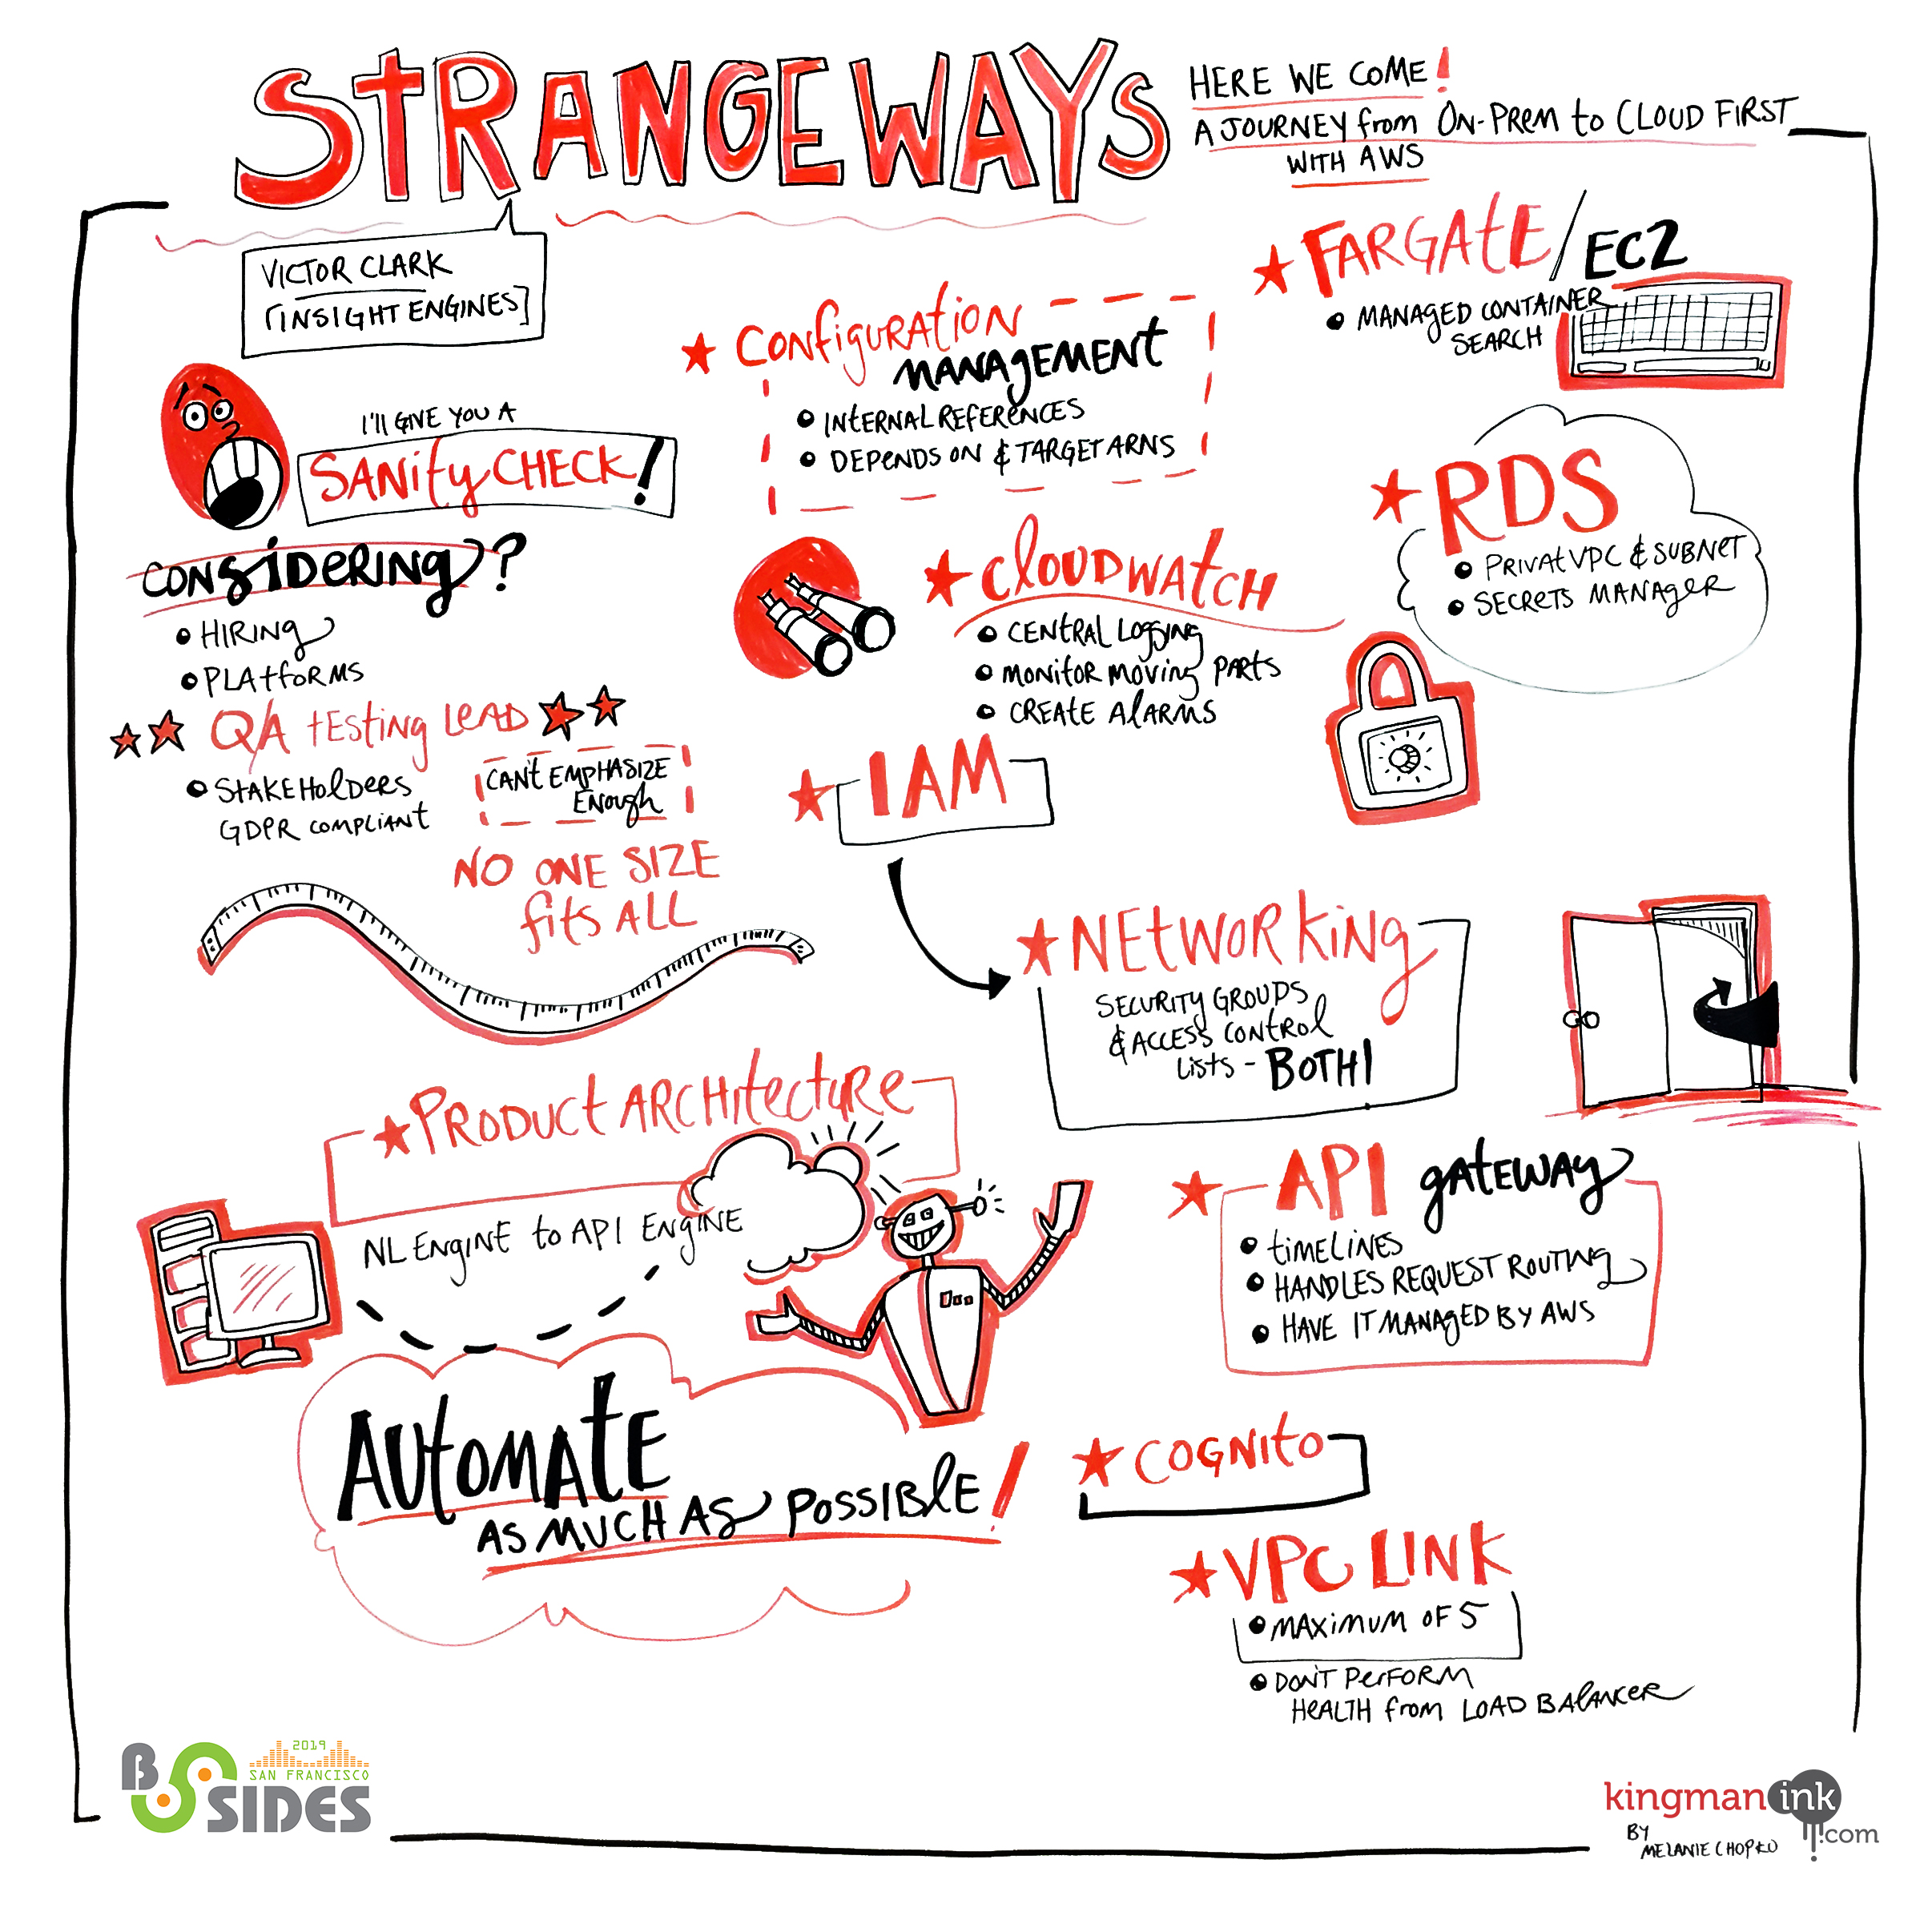 STRANGEWAYS
HERE WE COME!
A JOURNEY from ON-PREM to CLOUD FIRST
WITH AWS
VICTOR CLARK
[INSIGHT ENGINES]
I'll GIVE YOU A
SANITY CHECK!
CONSIDERING?
• HIRING
• PLATFORMS
Q/A TESTING LEAD
• STAKEHOLDERS
GDPR COMPLIANT
CAN'T EMPHASIZE
ENOUGH
NO ONE SIZE
fits ALL
CONFIGURATION
MANAGEMENT
• INTERNAL REFERENCES
• DEPENDS ON & TARGET ARNS
CLOUDWATCH
• CENTRAL LOGGING
• MONITOR MOVING PARTS
• CREATE ALARMS
IAM
FARGATE/EC2
• MANAGED CONTAINER
SEARCH
RDS
• PRIVAT VPC & SUBNET
• SECRETS MANAGER
NETWORKING
SECURITY GROUPS
& ACCESS CONTROL
LISTS - BOTH!
PRODUCT ARCHITECTURE
NL ENGINE to API ENGINE
AUTOMATE
AS MUCH AS POSSIBLE!
API GATEWAY
• TIMELINES
• HANDLES REQUEST ROUTING
• HAVE IT MANAGED BY AWS
COGNITO
VPC LINK
• MAXIMUM OF 5
• DON'T PERFORM
HEALTH from LOAD BALANCER
2019
SAN FRANCISCO
B SIDES
kingman ink
.com
BY
MELANIE CHOPKO